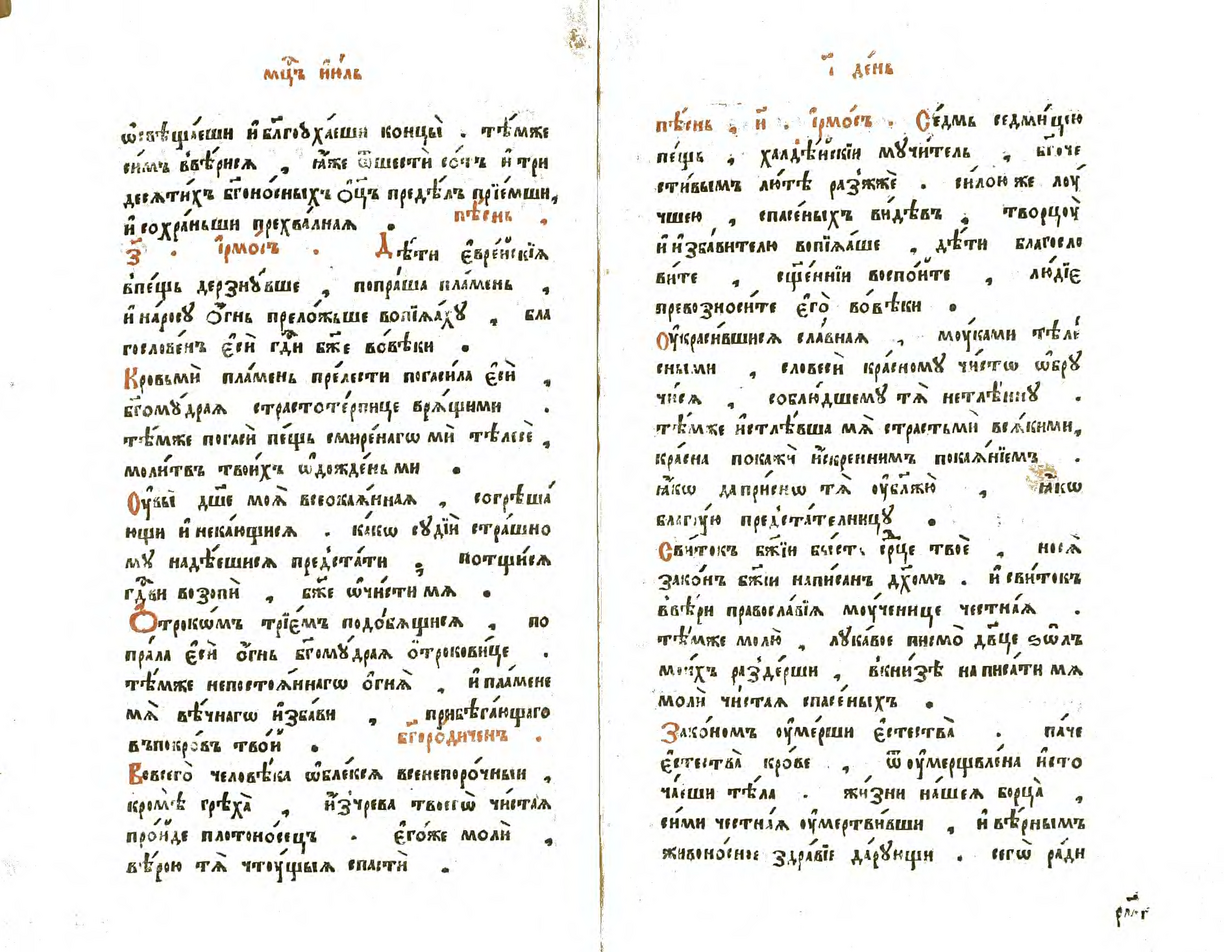 мц҃ъ і҆ю́ль
ѡ҆свѣща́еши и҆ бл҃гоꙋха́еши концы̀ . тѣ́мже
си́мъ ввѣ́рися , ꙗ҆́же ѿ шестѝ со́тъ и҆ три
деся́тихъ бг҃оно́сныхъ ѻ҆ц҃ъ предѣ́лъ прїе́мши,
и҆ сохра́ньши прехва́лная . пѣ́снь .
з҃ . і҆рмо́съ . Дѣ́ти є҆вре́йскїѧ
впе́щь дерзнꙋ́вше , попра́ша пла́мень ,
и҆ нароⷭ҇ꙋ ѻ҆́гнь прело́жьше вопїѧ́хꙋ , бла
гослове́нъ є҆сѝ гдⷭ҇и бж҃е во́вѣки .
Кровьмѝ пла́мень пре́лести погаси́ла є҆сѝ ,
бг҃омꙋ́драѧ страстоте́рпице врѧ́щими .
тѣ́мже погасѝ пе́щь смире́нагѡ мѝ тѣлесѐ ,
моли́твъ твои́хъ ѡ҆дожде́ньми .
Оу҆вы̀ дш҃е моѧ̀ всеока́ѧннаѧ , согрѣша́
ющи и҆ нека́ющисѧ . ка́кѡ сꙋдїѝ стра́шно
мꙋ надѣ́ешисѧ предста́ти ; потщи́сѧ
гдⷭ҇ви возопѝ , бж҃е ѡ҆чи́сти мѧ .
Отрокѡ́мъ трїе́мъ подо́бѧщисѧ , по
пра́ла є҆сѝ ѻ҆́гнь бг҃омꙋ́драѧ ѻ҆трокови́це .
тѣ́мже непостоѧ́ннагѡ ѻ҆гнѧ̀ , и҆ пла́мене
мѧ̀ вѣ́чнагѡ и҆зба́ви , прибѣга́ющаго
въпокро́въ тво́й . бг҃оро́диченъ .
Вовсего̀ человѣ́ка ѡ҆блексѧ всенепоро́чныи ,
кромѣ̀ грѣха̀ , и҆зчре́ва твоегѡ̀ чи́стаѧ
про́йде плотоно́сецъ . є҆го́же молѝ ,
вѣ́рою тѧ̀ чтоу́щыѧ спастѝ .
і҃ де́нь
пѣ́снь , и҃ . і҆рмо́съ . Се́дмь седми́цею
пе́щь , халде́йскїи мꙋчи́тель , бг҃оче
сти́вымъ лю́тѣ раз̾жжѐ . си́лою же лоу́
чшею , спасе́ныхъ ви́дѣвъ , творцоу̀
и҆ и҆зба́вителю вопїѧ́ше , дѣ́ти благосло
ви́те , сщ҃е́ннїи воспо́йте , лю́дїе
превозноси́те є҆го̀ во́вѣки .
Оу҆краси́вшисѧ сла́внаѧ , моу́ками тѣле́
сными , словесѝ кра́сномꙋ чи́стѡ ѡ҆брꙋ
чи́сѧ , соблю́дшемꙋ тѧ̀ нетлѣ́ннꙋ .
тѣ́мже и҆стлѣ́вша мѧ̀ страстьмѝ всѧ́кими,
кра́сна покажѝ и҆́скреннимъ покаѧ́нїемъ .
ꙗ҆́кѡ да присно тѧ̀ оу҆блажю̀ , ꙗ҆́кѡ
благꙋ́ю предста́телницꙋ .
Сви́токъ бж҃їи бы́сть срⷣце твоѐ , носѧ̀
зако́нъ бж҃їи написан дх҃омъ . и҆ сви́токъ
ввѣ́ри правосла́вїѧ моу́ченице честна́ѧ .
тѣ́мже молю̀ , лꙋка́вое писмо̀ дв҃це ѕѡ́лъ
мои́хъ раздерши , вкни́зѣ написа́ти мѧ
молѝ чи́стаѧ спасе́ныхъ .
Зако́номъ оу҆ме́рши є҆стества̀ . па́че
є҆стества̀ кро́ве , ѿ оу҆мерщвле́на и҆сто
ча́еши тѣ́ла . жи́зни на́шеѧ борца̀ ,
си́ми честна́ѧ оу҆мертви́вши , и҆ вѣ́рнымъ
живоно́сное здра́вїе да́рꙋющи . сегѡ̀ ра́ди